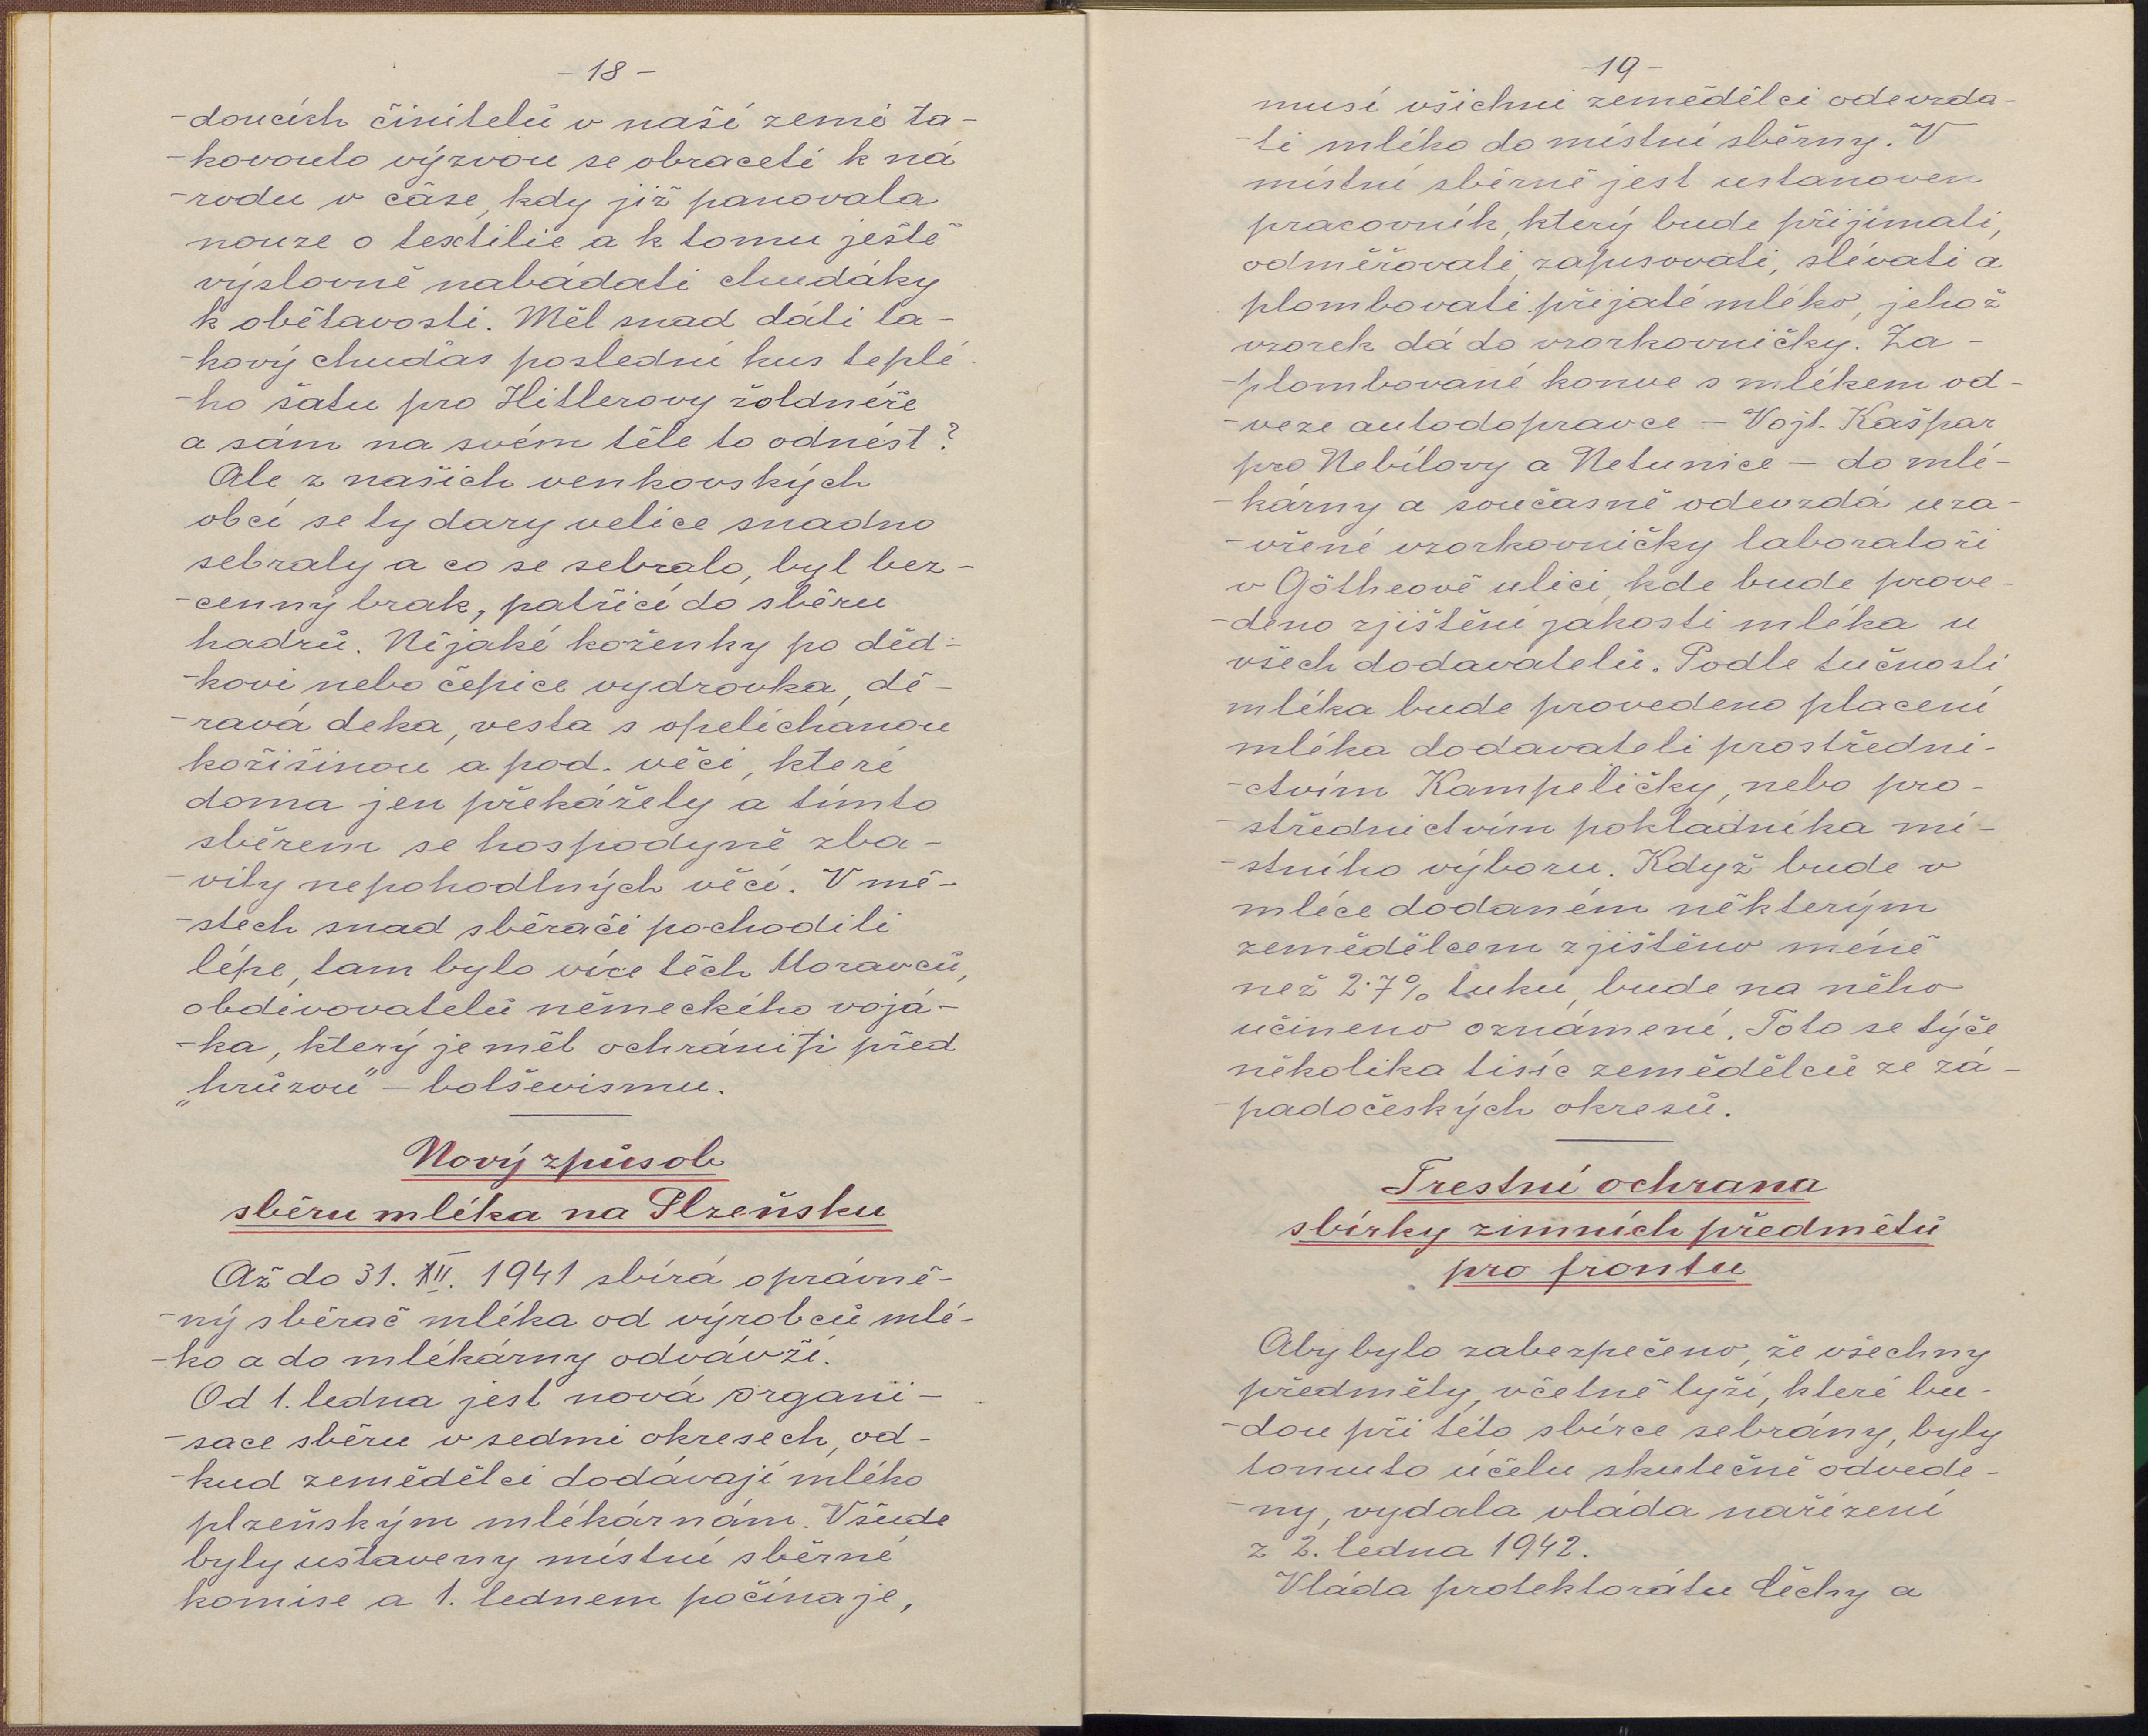 - 18 -
-doucích činitelů v naší zemi ta-
-kovouto výzvou se obraceti k ná
-rodu v čase, kdy již panovala
nouze o textilie a k tomu ještě
výslovně nabádati chudáky
k obětavosti. Měl snad dáti ta-
-kový chuďas poslední kus teplé
-ho šatu pro Hitlerovy žoldnéře
a sám na svém těle to odnést?
Ale z našich venkovských
obcí se ty dary velice snadno
sebraly a co se sebralo, byl bez-
-cenný brak, patřící do sběru
hadrů. Nějaké koženky po děd-
-kovi nebo čepice vydrovka, dě-
-ravá deka, vesta s opelichanou
kožišinou a pod. věci, které
doma jen překážely a tímto
sběrem se hospodyně zba-
-vily nepohodlných věcí. V mě-
-stech snad sběrači pochodili
lépe, tam bylo více těch Moravců,
obdivovatelů německého vojá-
-ka, který je měl ochrániti před
„hrůzou" - bolševismu.
Nový způsob
sběru mléka na Plzeňsku
Až do 31. XII. 1941 sbírá oprávně-
-ný sběrač mléka od výrobců mlé-
-ko a do mlékárny odváží.
Od 1. ledna jest nová organi-
-sace sběru v sedmi okresech, od-
-kud zemědělci dodávají mléko
plzeňským mlékárnám. Všude
byly ustaveny místní sběrné
komise a 1. lednem počínaje,
- 19 -
musí všichni zemědělci odevzda-
-ti mléko do místní sběrny. V
místní sběrně jest ustanoven
pracovník, který bude přijímati,
odměřovati, zapisovati, slévati a
plombovati přijaté mléko, jehož
vzorek dá do vzorkovničky. Za-
-plombované konve s mlékem od-
-veze autodopravce - Vojt. Kašpar
pro Nebílovy a Netunice - do mlé-
-kárny a současně odevzdá uza-
-vřené vzorkovničky laboratoři
v Götheově ulici, kde bude prove-
-deno zjištění jakosti mléka u
všech dodavatelů. Podle tučnosti
mléka bude provedeno placení
mléka dodavateli prostředni-
-ctvím Kampeličky, nebo pro-
-střednictvím pokladníka mí-
-stního výboru. Když bude v
mléce dodaném některým
zemědělcem zjištěno méně
než 2·7% tuku, bude na něho
učineno oznámení. Toto se týče
několika tisíc zemědělců ze zá-
-padočeských okresů.
Trestní ochrana
sbírky zimních předmětů
pro frontu
Aby bylo zabezpečeno, že všechny
předměty, včetně lyží, které bu-
-dou při této sbírce sebrány, byly
tomuto účelu skutečně odvede-
-ny, vydala vláda nařízení
z 2. ledna 1942.
Vláda protektorátu Čechy a